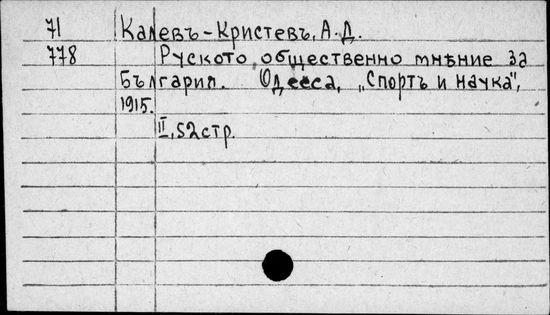 71 Калевъ-Кристевъ, А.Д.
778 Руското общественно мнѣние за
България. Одесса, „Спортъ и наука",
1915.
II, 52 стр.